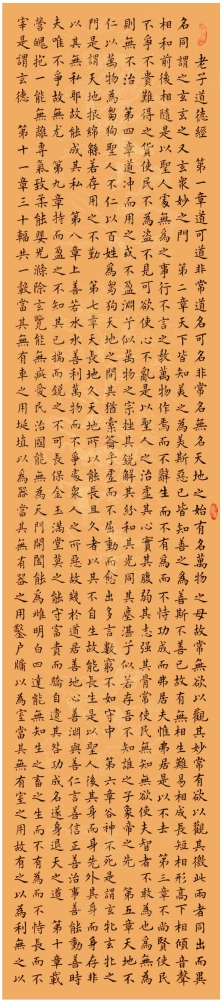 老子道德經 第一章道可道非常道名可名非常名無名天地之始有名萬物之母故常無欲以觀其妙常有欲以觀其徼此兩者同出而異
名同謂之玄玄之又玄衆妙之門 第二章天下皆知美之為美斯惡已皆知善之為善斯不善已故有無相生難易相成長短相形高下相傾音聲
相和前後相隨是以聖人處無為之事行不言之教萬物作焉而不辭生而不有為而不恃功成而弗居夫惟弗居是以不去 第三章不尚賢使民
不爭不貴難得之貨使民不為盜不見可欲使心不亂是以聖人之治虛其心實其腹弱其志強其骨常使民無知無欲使夫智者不敢為也為無為
則無不治 第四章道沖而用之或不盈淵乎似萬物之宗挫其銳解其紛和其光同其塵湛兮似若存吾不知誰之子象帝之先 第五章天地不
仁以萬物為芻狗聖人不仁以百姓為芻狗天地之間其猶橐籥乎虛而不屈動而愈出多言數窮不如守中 第六章谷神不死是謂玄牝玄牝之
門是謂天地根綿綿若存用之不勤 第七章天長地久天地所以能長且久者以其不自生故能長生是以聖人後其身而身先外其身而身存非
以其無私耶故能成其私 第八章上善若水水善利萬物而不爭處衆人之所惡故幾於道居善地心善淵與善仁言善信正善治事善能動善時
夫唯不爭故無尤 第九章持而盈之不知其已揣而銳之不可長保金玉滿堂莫之能守富貴而驕自遺其咎功成名遂身退天之道 第十章載
營魄抱一能無離專氣致柔能嬰兒滌除玄覽能無疵愛民治國能無為天門開闔能為雌明白四達能無知生之畜之生而不有為而不恃長而不
宰是謂玄德 第十一章三十輻共一轂當其無有車之用埏埴以為器當其無有器之用鑿戶牖以為室當其無有室之用故有之以為利無之以